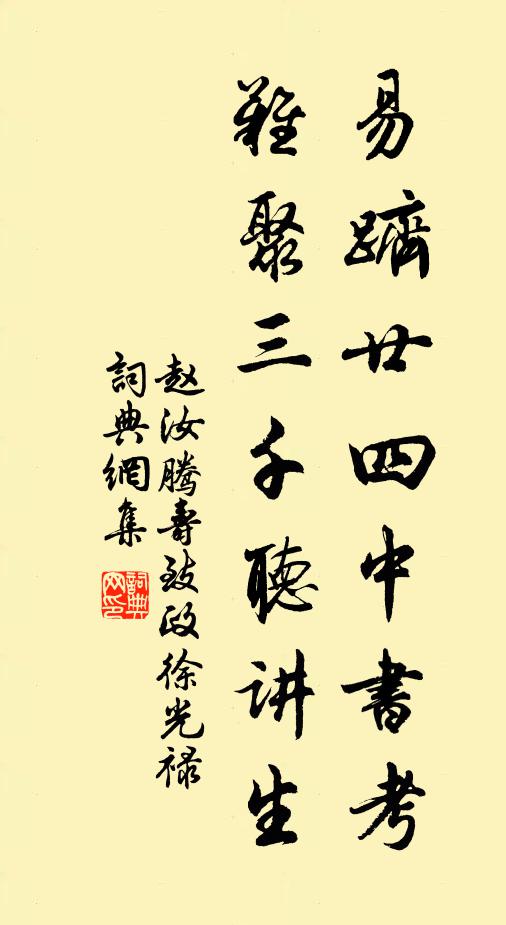 易躋廿四中書考
難聚三千聽讲生
赵汝騰壽致政徐光禄
詞典網集
詞典网印